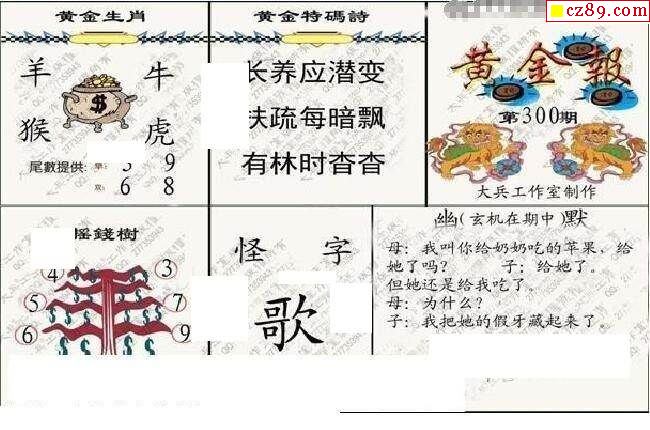 cz89.com
黄金生肖
羊 牛
猴 虎
$
尾數提供: 單: 3 9
双: 6 8
黄金特碼詩
长养应潜变
扶疏每暗飘
有林时杳杳
黄金報
第300期
大兵工作室制作
摇錢樹
4 3
5 7
6 9
怪 字
歌
幽(玄机在期中)默
母: 我叫你给奶奶吃的苹果,给
她了吗? 子: 给她了。
但她还是给我吃了。
母: 为什么?
子: 我把她的假牙藏起来了。